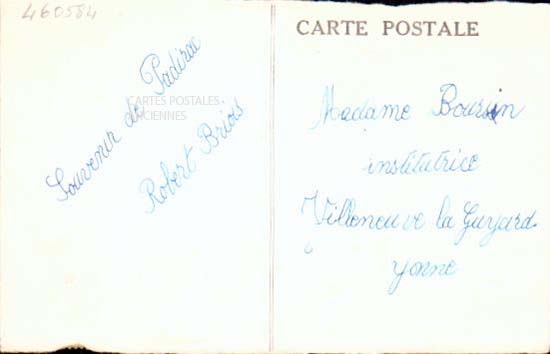 460584
CARTE POSTALE
Souvenir de Padirac
Robert Briois
CARTES POSTALES
ANCIENNES
Madame Boursin
institutrice
Villeneuve la Guyard
Yonne